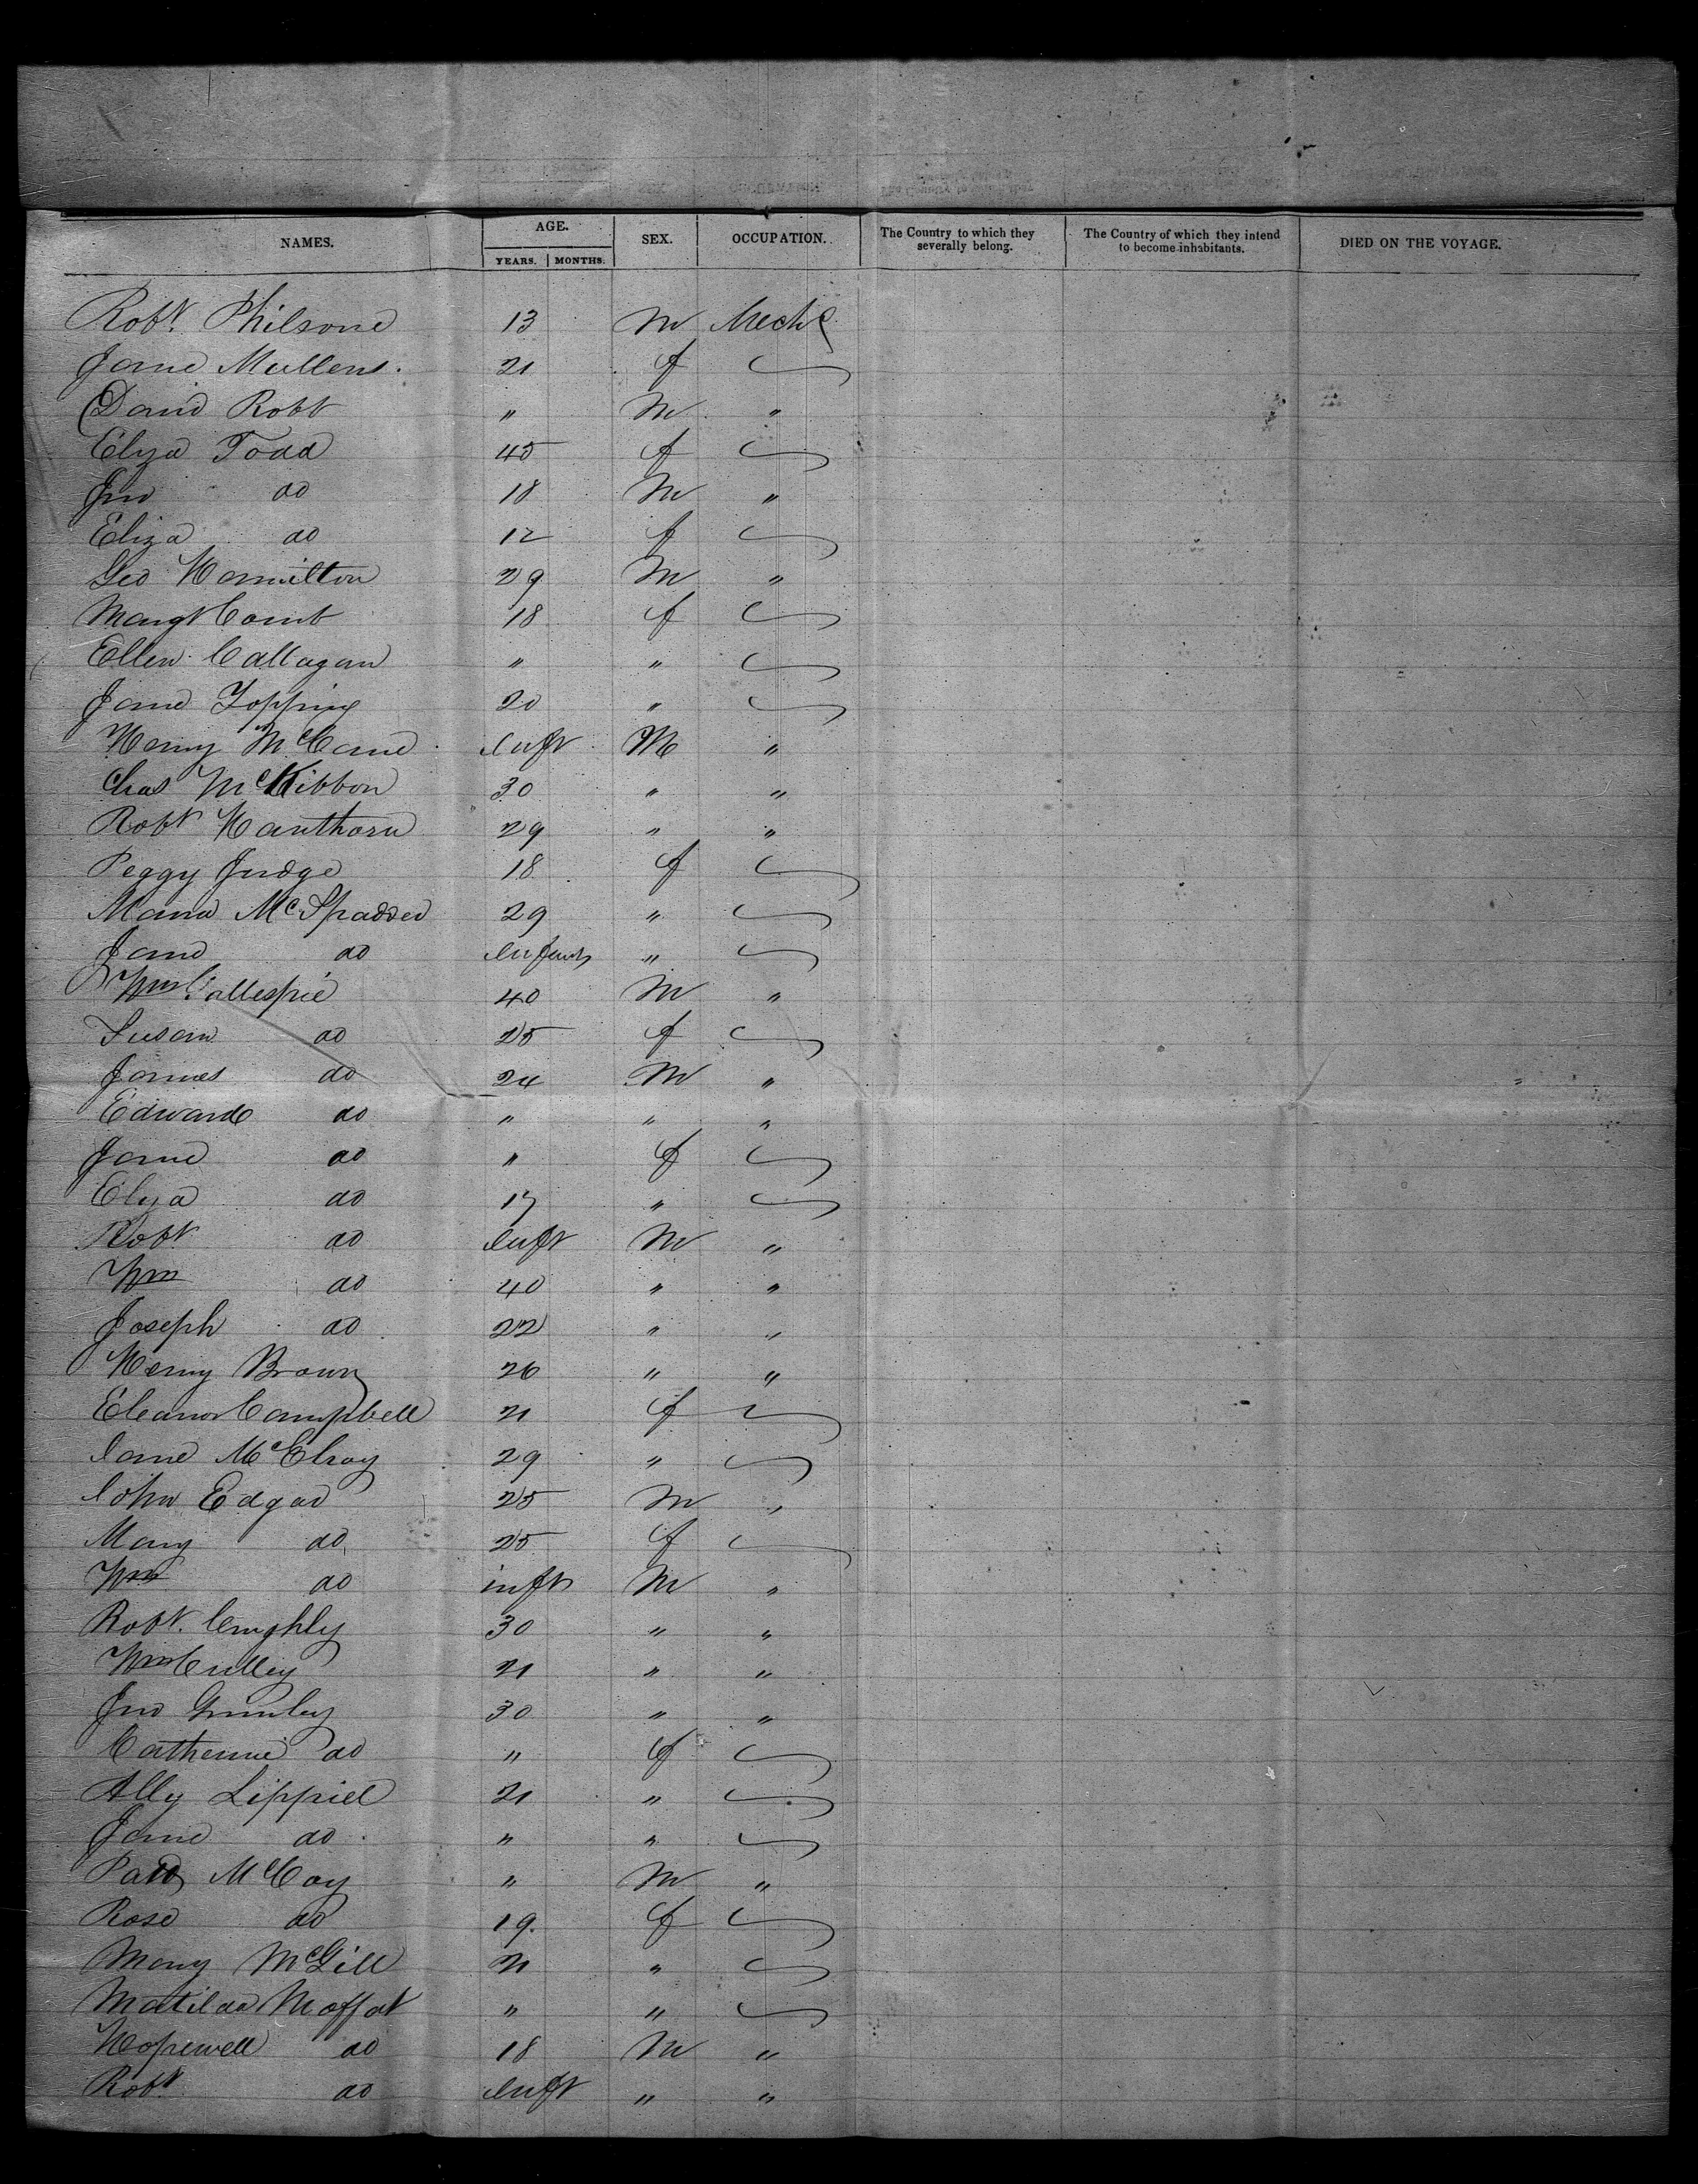 NAMES. AGE. SEX. OCCUPATION. The Country to which they severally belong. The Country of which they intend to become inhabitants. DIED ON THE VOYAGE.
YEARS. MONTHS.
Robt. Philson 13 M Mech
Jane Mullens. 21 f
David Robt " M "
Elyza Todd 45 f
Jno do 18 M "
Eliza do 12 f
Geo Hamilton 29 M "
Margt Comb 18 f
Ellen Callagan " "
Jane Topping 20 "
Henry McCane Inft M "
Chas McKibbon 30 " "
Robt Hanthorn 29 " "
Peggy Judge 18 f
Maria McSpadden 29 "
Jane do Infant "
Wm Gallespie 40 M "
Susan do 25 f
James do 24 M "
Edward do " " "
Jane do " f
Elyza do 17 "
Robt do Inft M "
Wm do 40 " "
Joseph do 22 " "
Henry Brown 26 " "
Eleanor Campbell 21 f
Jane McElroy 29 "
John Edgar 25 M "
Mary do 25 f
Wm do inft M "
Robt. 30 " "
Wm Culley 21 " "
Jno 30 " "
Catherine do " f
Ally Lippiel 21 "
Jane do " "
McCoy " M "
Rose do 19. f
Mary McGill 21 "
Matilda Moffat " "
Hopewell do 18 M "
Robt do Inft " "